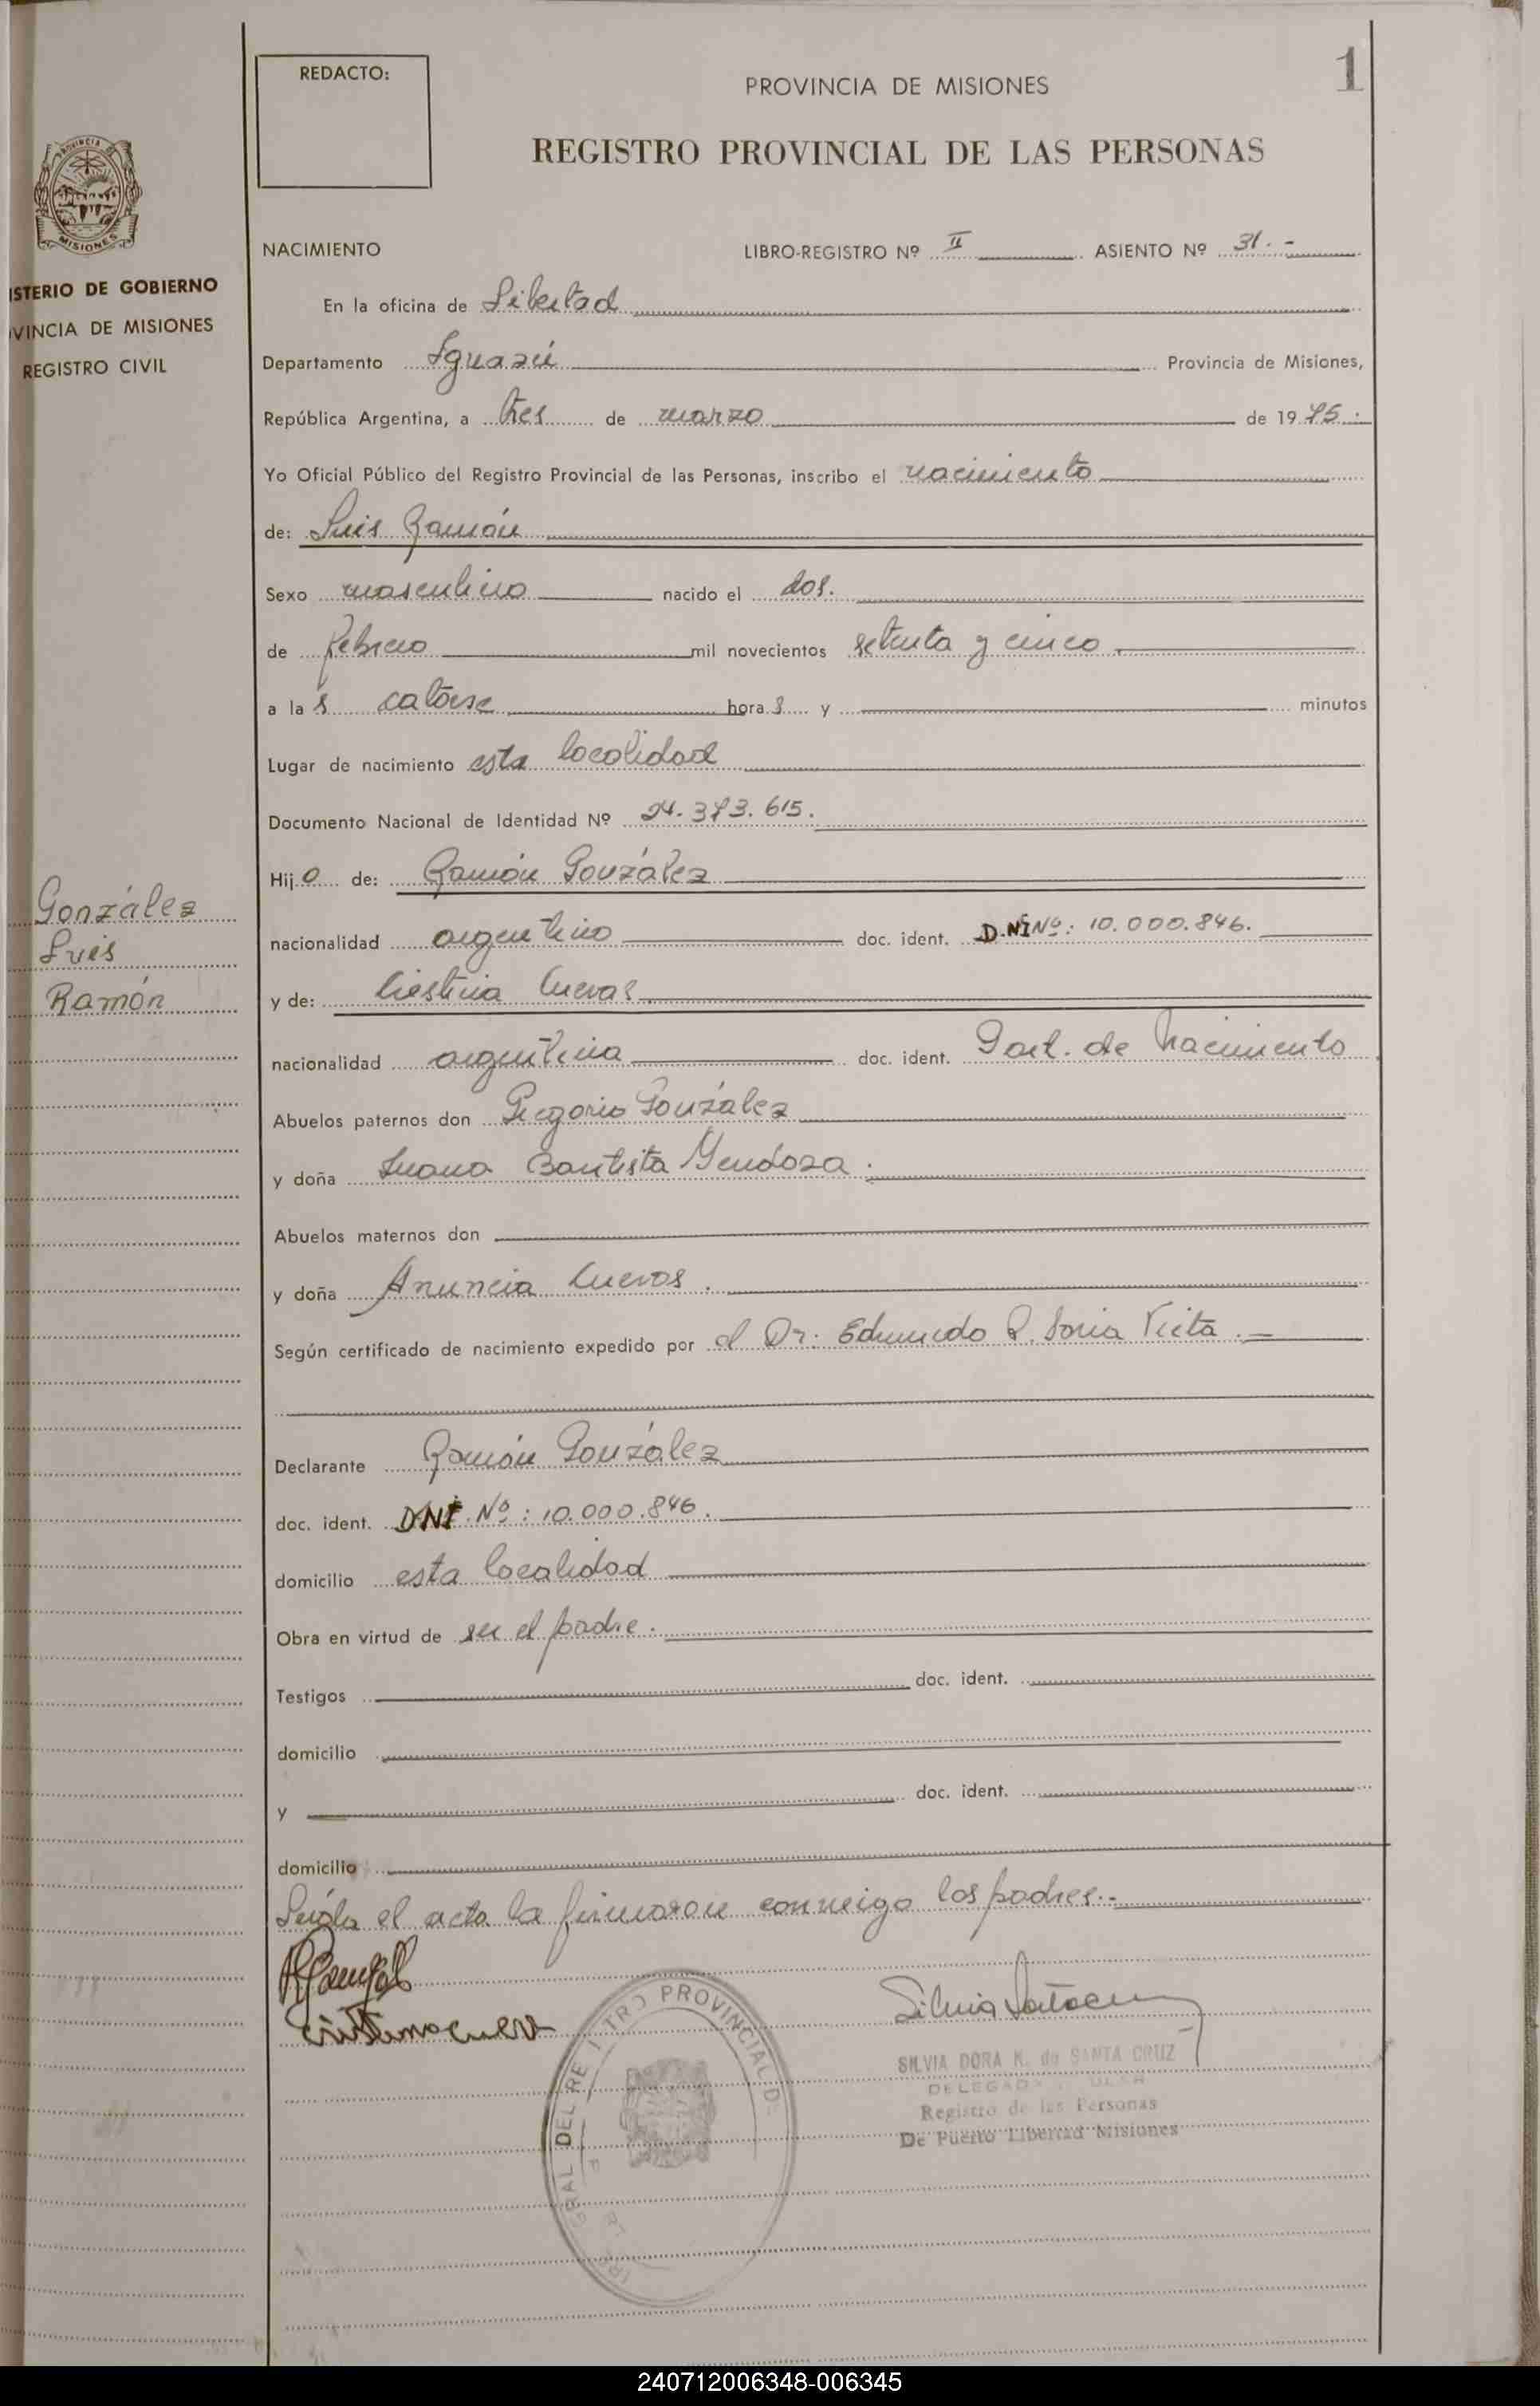 REDACTO:
PROVINCIA DE MISIONES
1
REGISTRO PROVINCIAL DE LAS PERSONAS
PROVINCIA DE
MISIONES
ISTERIO DE GOBIERNO
VINCIA DE MISIONES
REGISTRO CIVIL
NACIMIENTO LIBRO-REGISTRO Nº II ASIENTO Nº 31.-
En la oficina de Libertad
Departamento Iguazú Provincia de Misiones,
República Argentina, a tres de marzo de 1975.
Yo Oficial Público del Registro Provincial de las Personas, inscribo el nacimiento
de: Luis Ramón
Sexo masculino nacido el dos.
de febrero mil novecientos setenta y cinco.
a las catorse horas y minutos
Lugar de nacimiento esta localidad
Documento Nacional de Identidad Nº 24.373.615.
Hijo de: Ramón González
González
Luis
Ramón
nacionalidad argentino doc. ident. D.NI Nº: 10.000.846.
y de: Cristina Cuevas
nacionalidad argentina doc. ident. Part. de Nacimiento
Abuelos paternos don Gregorio González
y doña Juana Bautista Mendoza.
Abuelos maternos don
y doña Anuncia Cuevas.
Según certificado de nacimiento expedido por el Dr. Edmundo R. Soria Vieta.
Declarante Ramón González
doc. ident. DNI. Nº: 10.000.846.
domicilio esta localidad
Obra en virtud de ser el padre.
Testigos doc. ident.
domicilio
y doc. ident.
domicilio
Leída el acta la firmaron conmigo los padres.-
GRAL DEL REGISTRO PROVINCIAL DE
SILVIA DORA K. de SANTA CRUZ
DELEGADA TITULAR
Registro de las Personas
De Puerto Libertad Misiones
240712006348-006345